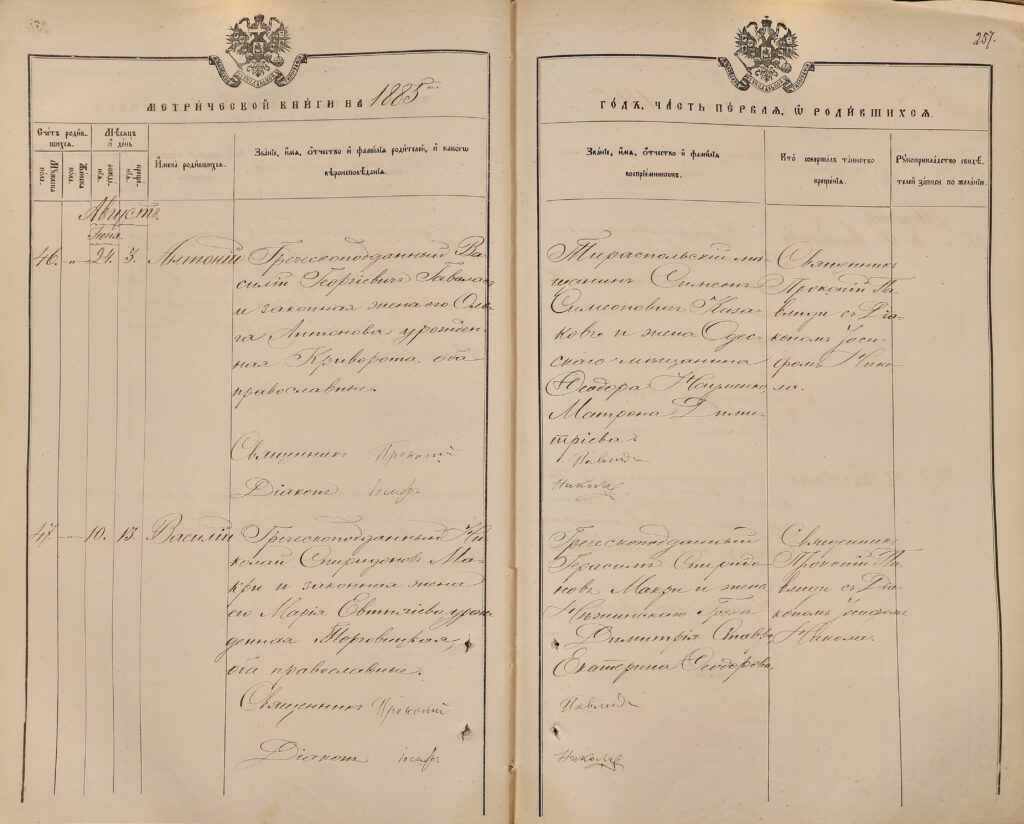 257.
МЕТРИ́ЧЕСКОЙ КНИ́ГИ НА 1885ый
ГО́ДЪ, ЧА́СТЬ ПЕ́РВАЯ, Ѿ РОДИ́ВШИХСЯ.
Счетъ роди́вшихся.
Мѣсяцъ и день.
Мꙋжеска пола.
Женска пола.
рожденія.
крещенія.
И҆мена роди́вшихся.
Зва́нїе, и҆мя, ѻ҆тчество и҆ фами́лїя роди́телей, и҆ како́гѡ
вѣроисповѣ́данїя.
Зва́нїе, и҆мя, ѻ҆тчество и҆ фами́лїя
воспрїе́мникѡвъ.
Кто̀ соверша́лъ та́инство
креще́нїя.
Рꙋкоприкла́дство свидѣ́-
телей за́писи по жела́нїю.
Августъ.
Іюня.
46. „ 24. 3. Антоній
Греческоподданный Ва-
силій Георгіевич
и законная жена его Оль-
га Антонова урожден-
ная Криворота, оба
православные.
Священникъ Прокопій
Діаконъ Іосифъ
Тираспольскій мѣ-
щанинъ Симеонъ
Симеоновичъ Каза-
ковъ и жена Одес-
скаго мѣщанина
Ѳеодора Науменко,
Матрона Дими-
тріева.
Павлиди
Николау
Священникъ
Прокопій Па-
влиди съ Діа-
кономъ Іоси-
фомъ Нико-
ла.
47. „ 10. 13. Василій
Греческоподданный Ни-
колай Спиридоновъ Ма-
кри и законная жена
его Марія Евтихіева урож-
денная Торговицкая,
оба православные.
Священникъ Прокопій
Діаконъ Іосифъ
Греческоподданный
Герасимъ Спиридо-
новъ Макри и жена
Нѣжинскаго Грека
Димитрія
Екатерина Ѳеодорова
Павлиди
Николау
Священникъ
Прокопій Па-
влиди съ Діа-
кономъ Іосифомъ
Никола.